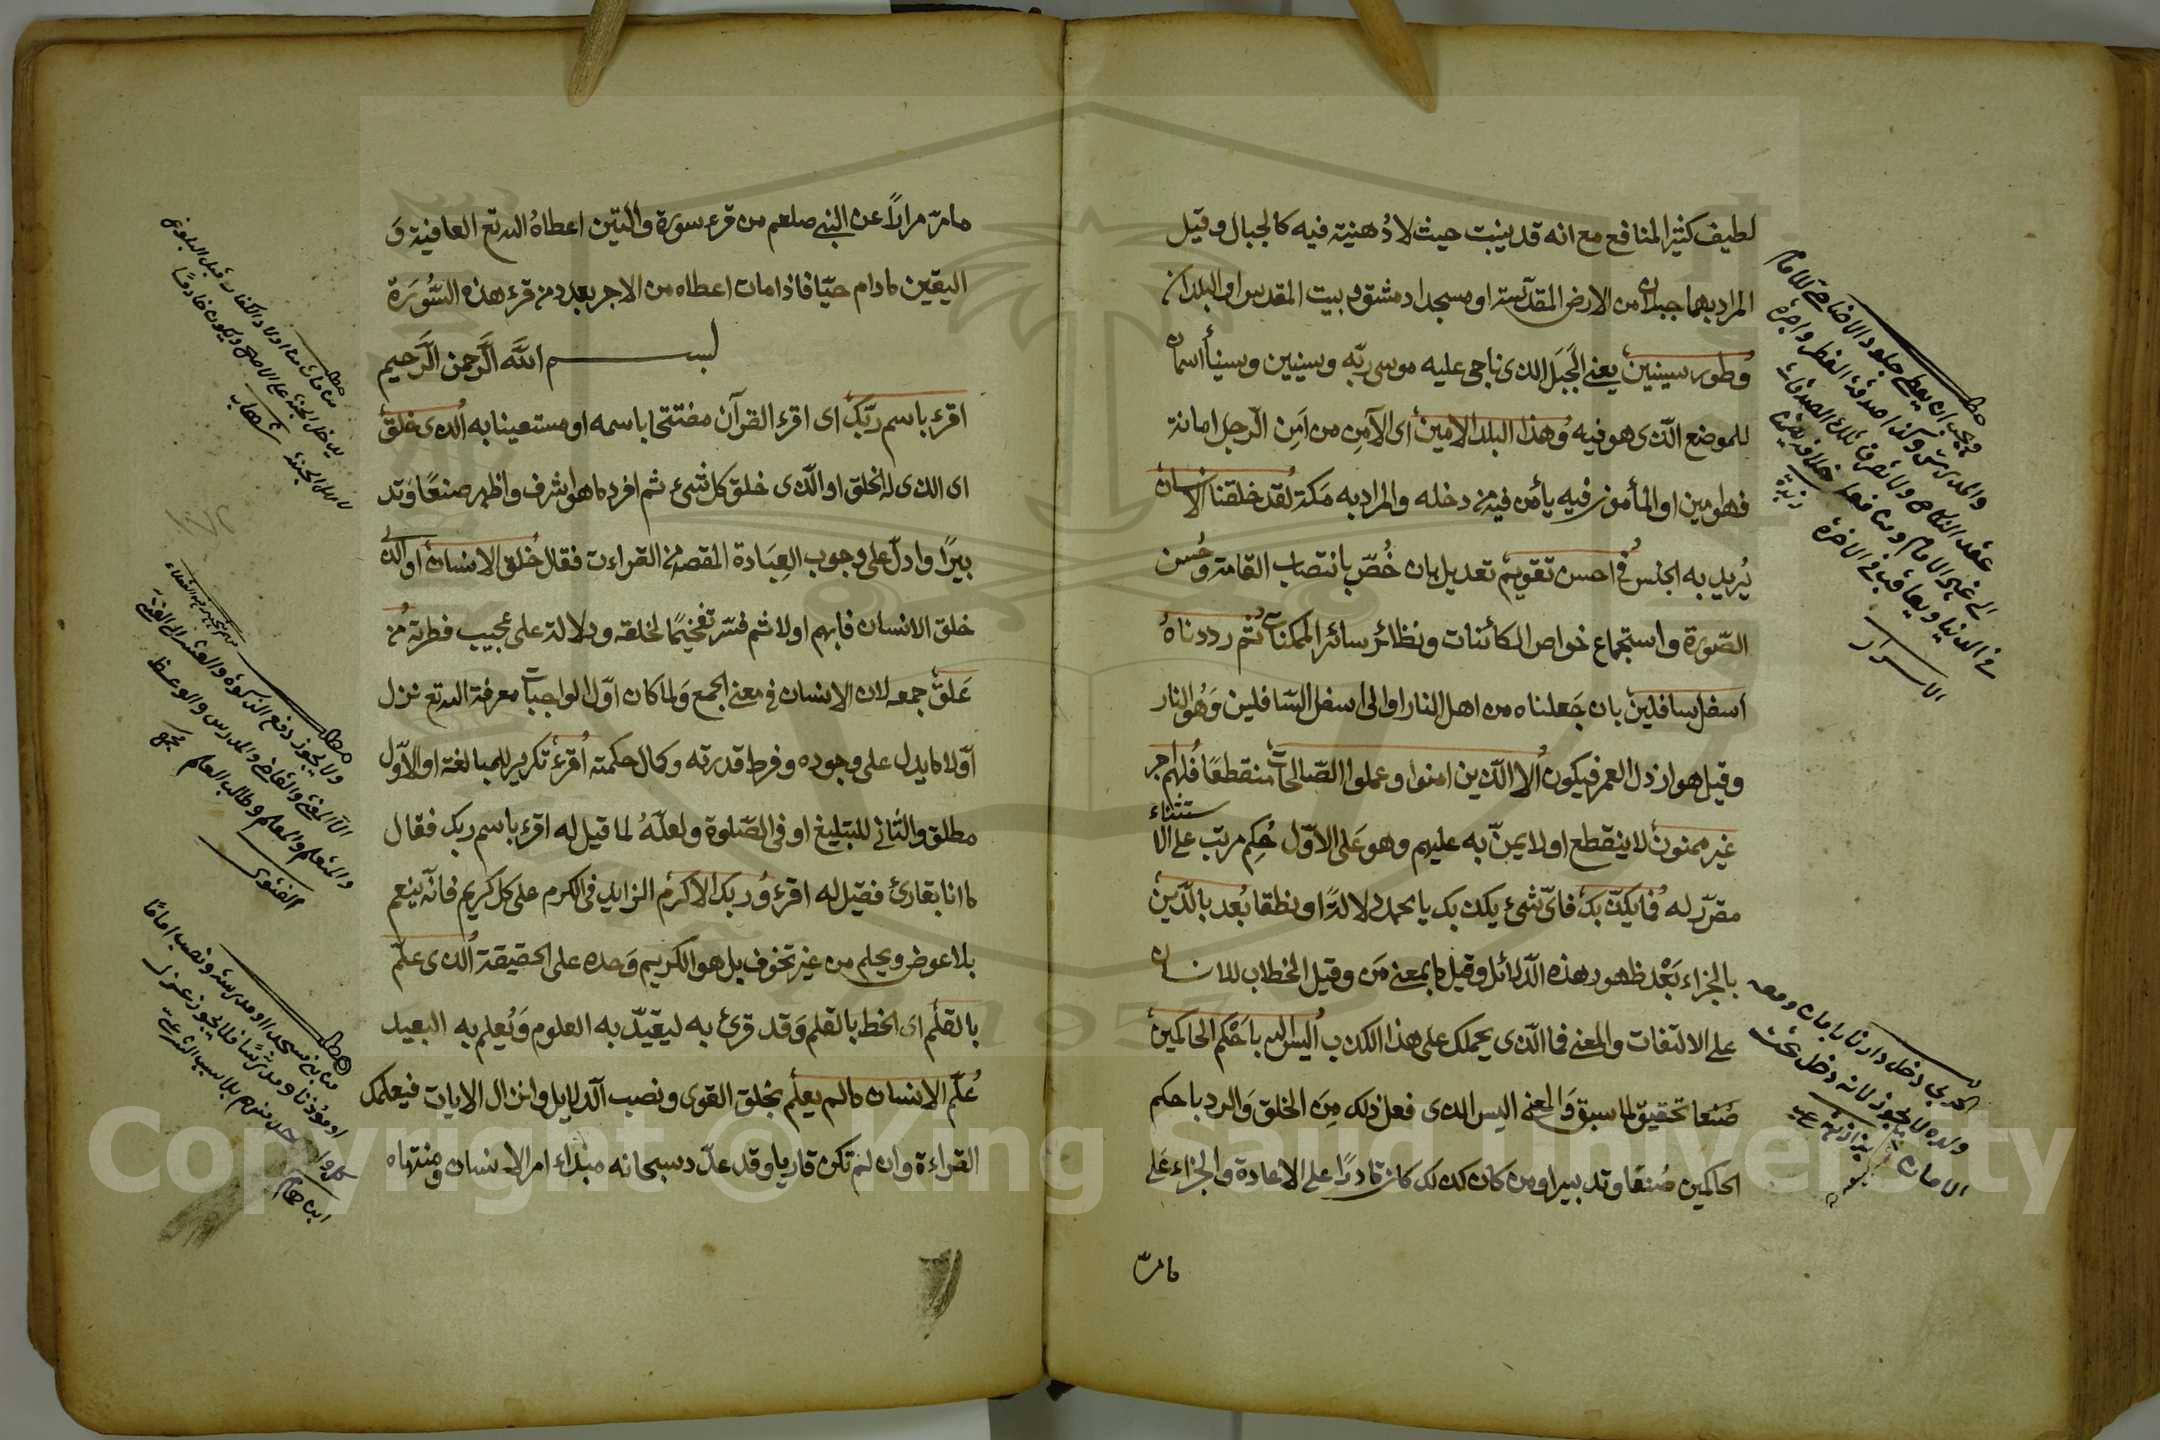 لطيف كثير المنافع مع انه قد ينبت حيث لا دهنية فيه كالجبال وقيل
المراد بهما جبلان من الارض المقدسة او مسجدا دمشق و بيت المقدس او البلدان
وطور سينين يعني الجبل الذى ناجى عليه موسى ربه وسينين وسيناأ اسمان
للموضع الذى هو فيه وهذا البلد الامين اى الآمن من امن الرجل امانة
فهو امين او المأمون فيه يأمن فيه من دخله والمراد به مكة لقد خلقنا الانسان
يريد به الجنس فى احسن تقويم تعديل بان خص بانتصاب القامة وحسن
الصورة واستجماع خواص الكائنات ونظائر سائر الممكنات ثم رددناه
اسفل سافلين بان جعلناه من اهل النار او الى اسفل السافلين وهو النار
وقيل هو ارذل العمر فيكون الا الذين امنوا وعملوا الصالحات منقطعا فلهم اجر
غير ممنون لا ينقطع او لا يمن به عليهم وهو على الاول حكم مرتب على الاستثناء
مقرر له فما يكذبك فاى شئ يكذبك يا محمد دلالة او نطقا بعد بالدين
بالجزاء بعد ظهور هذه الدلائل وقيل ما بمعنى من وقيل الخطاب للانسان
على الالتفات والمعنى فما الذى يحملك على هذا الكذب اليس الله باحكم الحاكمين
صنعا تحقيق لما سبق والمعنى اليس الذى فعل ذلك من الخلق والرد باحكم
الحاكمين صنعا وتدبيرا ومن كان كذلك كان قادرا على الاعادة والجزاء على
مامر
الحربى دخل دارنا بامان ومعه
ولده لا يجوز لانه دخل تحت
الامان
بزازيه
الاسرار
مامر مرارا عن النبى صلعم من قرء سورة والتين اعطاه الله تع العافية و
اليقين مادام حيا فاذا مات اعطاه من الاجر بعدد من قرء هذه السورة
بسم الله الرحمن الرحيم
اقرء باسم ربك اى اقرء القرآن مفتتحا باسمه او مستعينا به الذى خلق
اى الذى له الخلق او الذى خلق كل شئ ثم افرد ما هو اشرف واظهر صنعا وتد
بيرا وادل على وجوب العبادة المقصد من القراءت فقال خلق الانسان او الذى
خلق الانسان فابهم اولا ثم فسر تفخيما لخلقه ودلالة على عجيب فطرته من
علق جمعه لان الانسان فى معنى الجمع ولما كان اول الواجبات معرفة الله تع نزل
اولا ما يدل على وجوده وفرط قدرته وكمال حكمته اقرء تكرير للمبالغة او الاول
مطلق والثانى للتبليغ او فى الصلوة ولعله لما قيل له اقرء باسم ربك فقال
ما انا بقارئ فقيل له اقرء وربك الاكرم الزايد فى الكرم على كل كريم فانه ينعم
بلا عوض ويحلم من غير تخوف بل هو الكريم وحده على الحقيقة الذى علم
بالقلم اى الخط بالقلم وقد قرئ به ليقيد به العلوم ويعلم به البعيد
علم الانسان مالم يعلم بخلق القوى ونصب الدلايل وانزال الايات فيعلمك
القراءة وان لم تكن قاريا وقد عدد سبحانه مبداء امر الانسان ومنتهاه
من مات من اولاد الكفار قبل البلوغ
يدخل الجنة على الاصح ويكون خادما
لاهل الجنة
شهاب
ولا يجوز دفع الزكوة والعشر الى الغنى
الا الغنى والقاضى والمدرس والواعظ
والمتعلم والمعلم وطالب العلم
الفتوى
من بنى مسجدا او مدرسة ونصب اماما
او مؤذنا ومدرسا فلا يجوز عزل
ابن همام
Copyright © King Saud University
1957